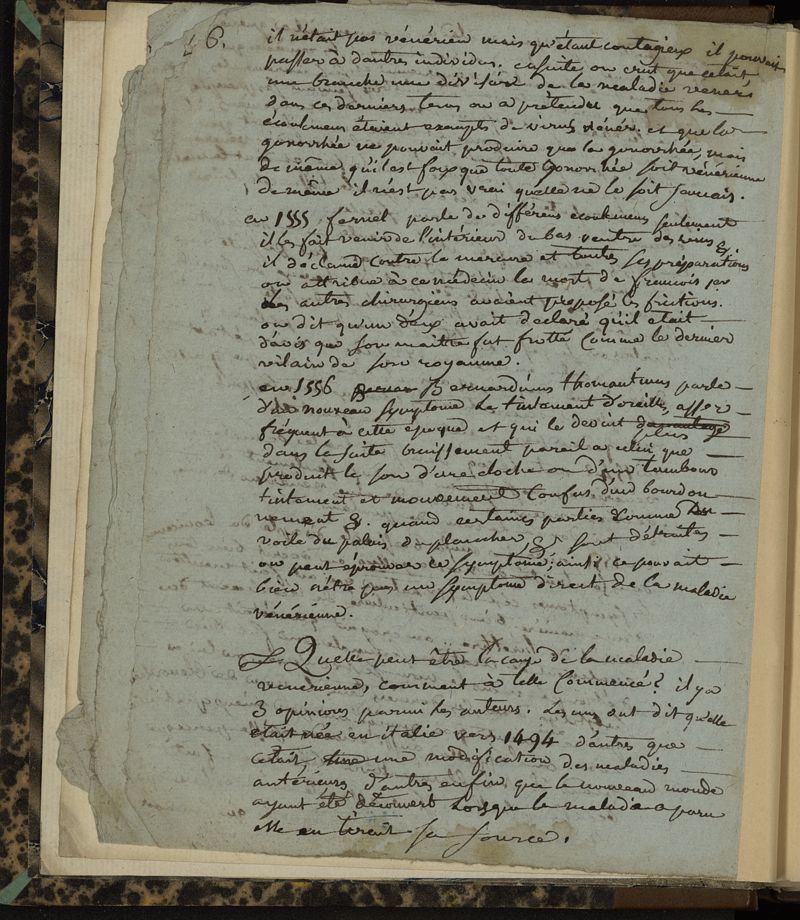 6.
il n'était pas vénérien mais qu'étant contagieux il pouvait
passer à d'autres individus. ensuite on crut que c'était
une branche une dérivé de la maladie vener
dans ces derniers tems on a prétendu que tous les
écoulemens étaient exempts de virus vénér. et que la
gonorrhée ne pouvait produire que la gonorrhée, mais
de même qu'il est faux que toute Gonorrhée soit vénérienne
de même il n'est pas vrai qu'elle ne le soit jamais.
en 1555 fernel parle de différens écoulemens seulement
il les fait venir de l'intérieur du bas ventre des reins &.
il déclame contre le mercure et toutes ses préparations
on attribue à ce médecin la mort de francois per
les autres chirurgiens avaient proposé les frictions.
on dit qu'un d'eux avait déclaré qu'il était
d'avis que son maitre fut frotté comme le dernier
vilain de son royaume.
en 1556 Bernardinus thomanttinus parle
d'un nouveau symptome le tintement d'oreille, assez
fréquent à cette époque et qui le devint davantage plus
dans la suite bruissement pareil a celui que
produit le son d'une cloche ou d'un tambour
tintement et mouvement confus d'un bourdon-
nement &. quand certaines parties comme le
voile du palais du plancher & sont détruites
on peut éprouver ce symptome; ainsi ce pouvait
bien n'être pas un symptome direct de la maladie
vénérienne.
Quelle peut être la cause de la maladie
venerienne, comment a t elle commencé? il y a
3 opinions parmi les auteurs. Les uns ont dit qu'elle
était née en italie vers 1494 d'autres que
c'était une modification des maladies
antérieures, d'autres enfin que le nouveau monde
ayant été découvert lorsque la maladie a paru
elle en tirait sa source.